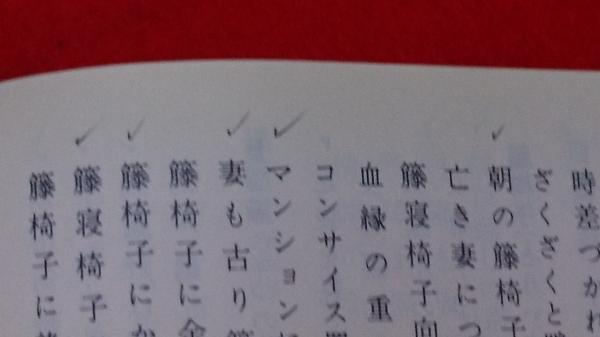 時差づかれ
ざくざくと
朝の籐椅子
亡き妻につ
籐寝椅子向
血縁の重
コンサイス
マンション
妻も古り籐
籐椅子に金
籐椅子にか
籐寝椅子
籐椅子に